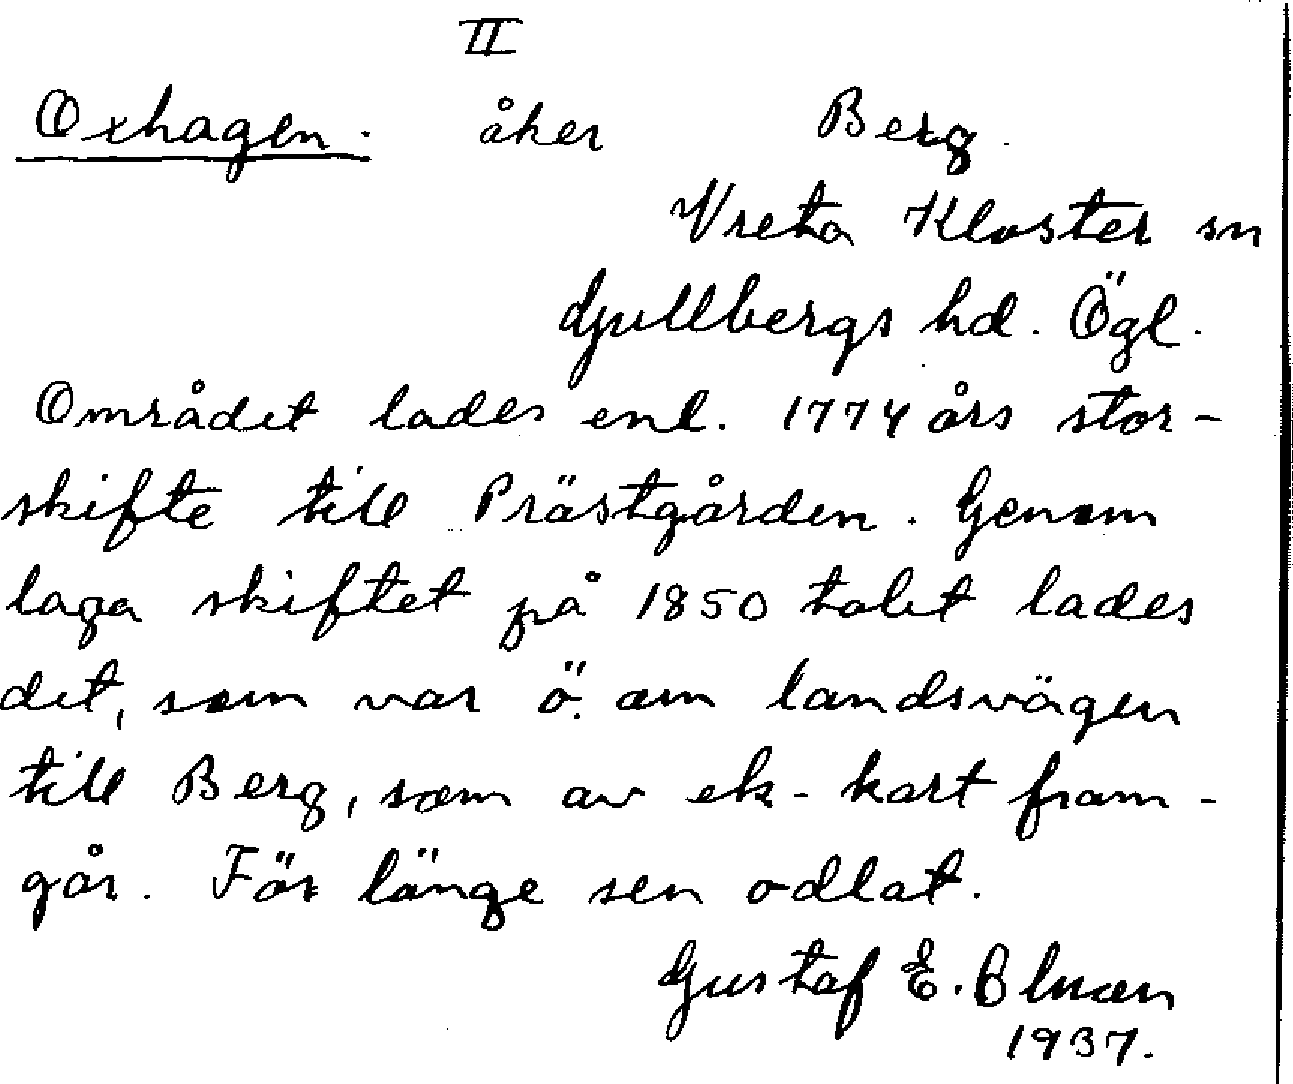 II
Oxhagen. åker Berg.
Vreta Kloster sn
Gullbergs hd. Ögl.
Området lades enl. 1774 års stor-
skifte till Prästgården. Genom
laga skiftet på 1850 talet lades
det, som var ö. om landsvägen
till Berg, som av ek-kart fram-
går. För länge sen odlat.
Gustaf E.
1937.